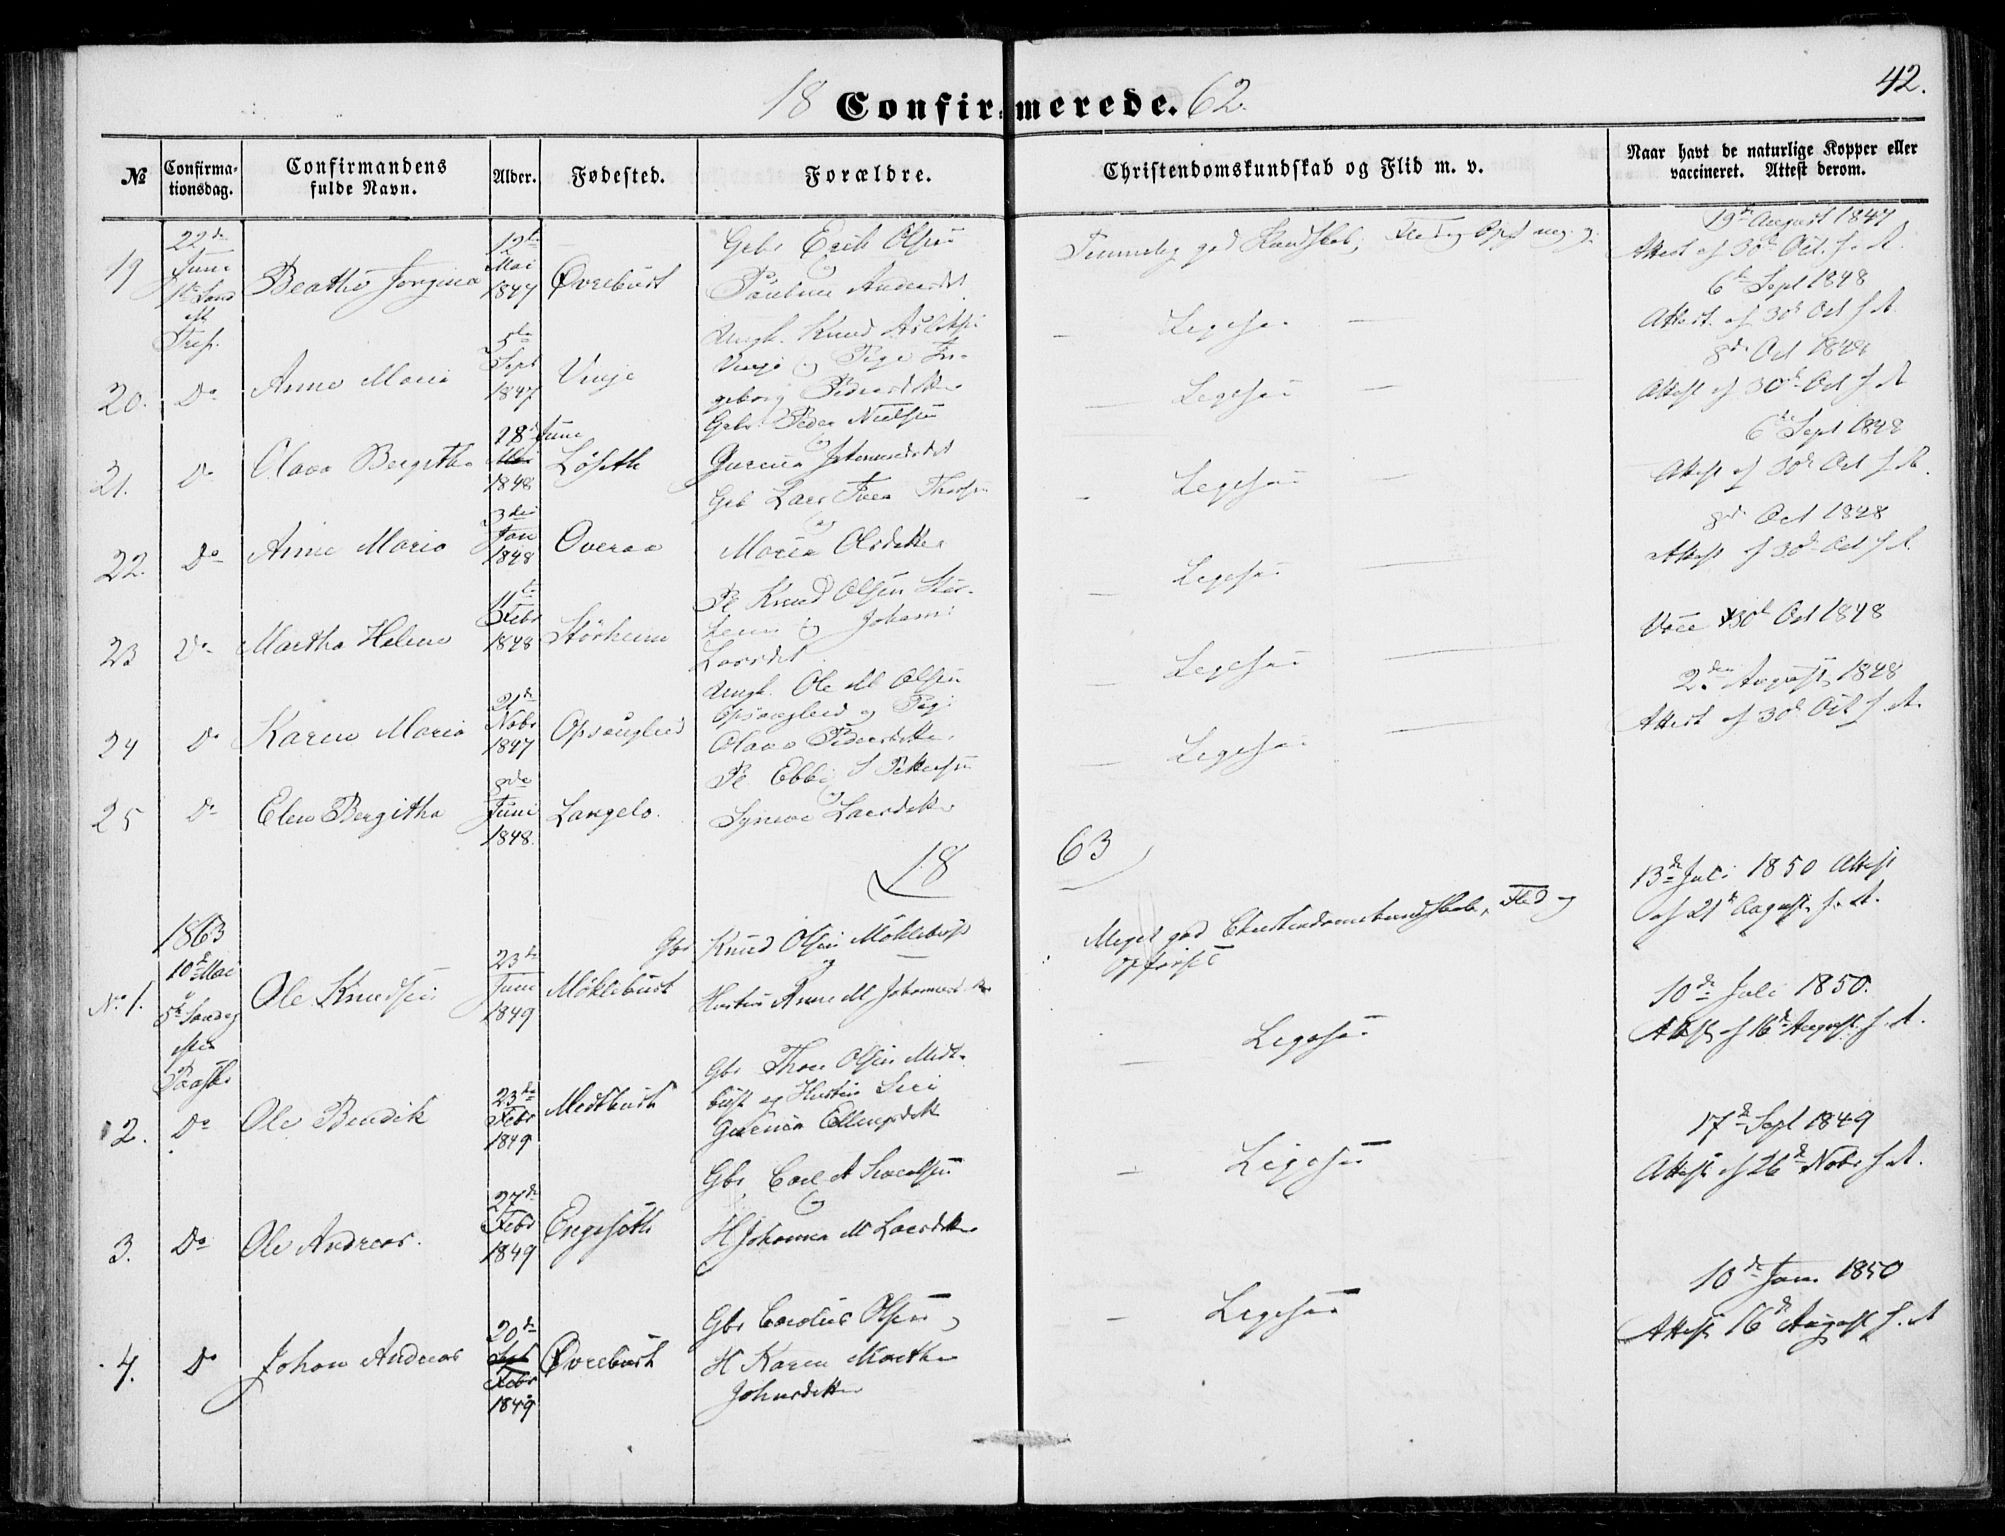 42.
18 Confirmerede. 62.
№
Confirma-
tionsdag.
Confirmandens
fulde Navn.
Alder.
Fødested.
Forældre.
Christendomskundskab og Flid m. v.
Naar havt de naturlige Kopper eller
vaccineret. Attest derom.
19
22de
Juni
1ste Sønd
eft
Tref.
Beathe Jorgina
12te
Mai
1847
Øvrebust
Gbr Erik Olsen
og
Pauline Andersdt
Temmelig god Kundskab, Flid og Opf meg. g.
19de August 1847
Attest af 30te Oct. s. A.
20.
Do
Anne Maria
5te
Sept
1847
Vinje
Ungk. Knud
Vinje og Pige In-
geborg Pedersdatter
Ligesaa
6te Sept 1848
Attest. af 30te Oct s A.
21.
Do
Olava Bergitha
18de Juni
Mai
1848
Løseth
Gbr Peder Nielsen
og
Gurina
Ligesaa
8de Oct 1848
Attest af 30te Oct s A
22.
Do
Anne Maria
3die
Jan
1848
Overaa
Gbr Lars Iver
og
Maria Olsdatter
Ligesaa
6te Sept 1848
Attest af 30te Oct s A.
23
Do
Martha Helene
11te
Febr
1848
Størheim
Pl Knud Olsen Stør-
heim og Johann
Larsdt
Ligesaa
8de Oct 1848
Attest af 30te Oct s A.
24
Do
Karen Maria
21de
Nobr
1847
Opsanglied
Ungk. Ole M Olsen
Opsanglied og Pige
Olava Pedersdatter
Ligesaa
Vacc 30te Oct 1848
25
Do
Elen Bergitha
8de
Juni
1848.
Langelo.
Pl Ebbe S Pettersen
og
Synneve Larsdatter
Ligesaa
2den August 1848
Attest af 30te Oct s. A.
18
63
1863
No 1.
10de Mai
5te Søndag
efter
Paaske
Ole Knudsen
23de
Juni
1849
Møklebust
Gbr Knud Olsen Møklebust
og
Hustru Anne M
Meget god Christendomskundskab, Flid og
Opførsel
13de Juli 1850 Attest
af 21de August s. A.
2.
Do
Ole Bendik
23de
Febr
1849
Medtbust
Gbr Thore Olsen Medt-
bust og Hustru
Gurina
Ligesaa
10de Juli 1850.
Attest af 16de August s. A.
3.
Do
Ole Andreas.
27de
Febr
1849
Engeseth
Gbr Carl A
og
H Johanna M Larsdatter
Ligesaa
17de Sept 1849
Attest af 26de Nobr s A.
4.
Do
Johan Andreas
20de
Sept
Febr
1849
Øvrebust
Gbr Carolus Olsen og
H Karen Marthe
Johnsdatter
Ligesaa
10de Jan. 1850
Attest 16de August s. A